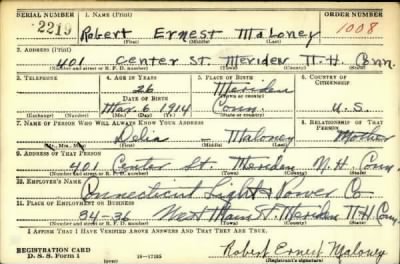 SERIAL NUMBER 1. NAME (Print) ORDER NUMBER
2219 Robert Ernest Maloney 1008
(First) (Middle) (Last)
2. ADDRESS (Print)
401 Center St. Meriden N.H. Conn.
(Number and street or R. F. D. number) (Town) (County) (State)
3. TELEPHONE 4. AGE IN YEARS 5. PLACE OF BIRTH 6. COUNTRY OF CITIZENSHIP
26 Meriden
DATE OF BIRTH (Town or county)
Mar. 6, 1914 Conn. U.S.
(Exchange) (Number) (Mo.) (Day) (Yr.) (State or country)
7. NAME OF PERSON WHO WILL ALWAYS KNOW YOUR ADDRESS 8. RELATIONSHIP OF THAT PERSON
Delia Maloney Mother
(Mr., Mrs., Miss) (First) (Middle) (Last)
9. ADDRESS OF THAT PERSON
401 Center St. Meriden N.H. Conn.
(Number and street or R. F. D. number) (Town) (County) (State)
10. EMPLOYER'S NAME
Connecticut Light & Power Co
11. PLACE OF EMPLOYMENT OR BUSINESS
34-36 West Main St. Meriden N.H. Conn.
(Number and street or R. F. D. number) (Town) (County) (State)
I AFFIRM THAT I HAVE VERIFIED ABOVE ANSWERS AND THAT THEY ARE TRUE.
REGISTRATION CARD
D. S. S. Form 1 16-17105 Robert Ernest Maloney
(over) (Registrant's signature)